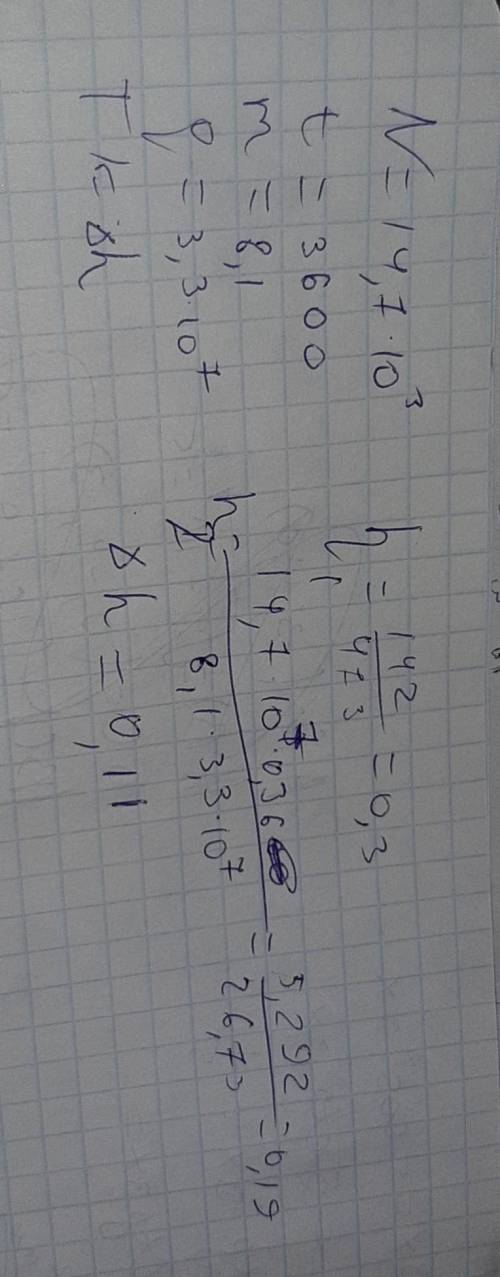 N = 14,7·10³
t = 3600
m = 8,1
q = 3,3·10⁷
T k = Δh
η₁ = 142/473 = 0,3
η₂ = 14,7·10⁷·0,36/8,1·3,3·10⁷ = 5,292/26,73 = 0,19
Δh = 0,11